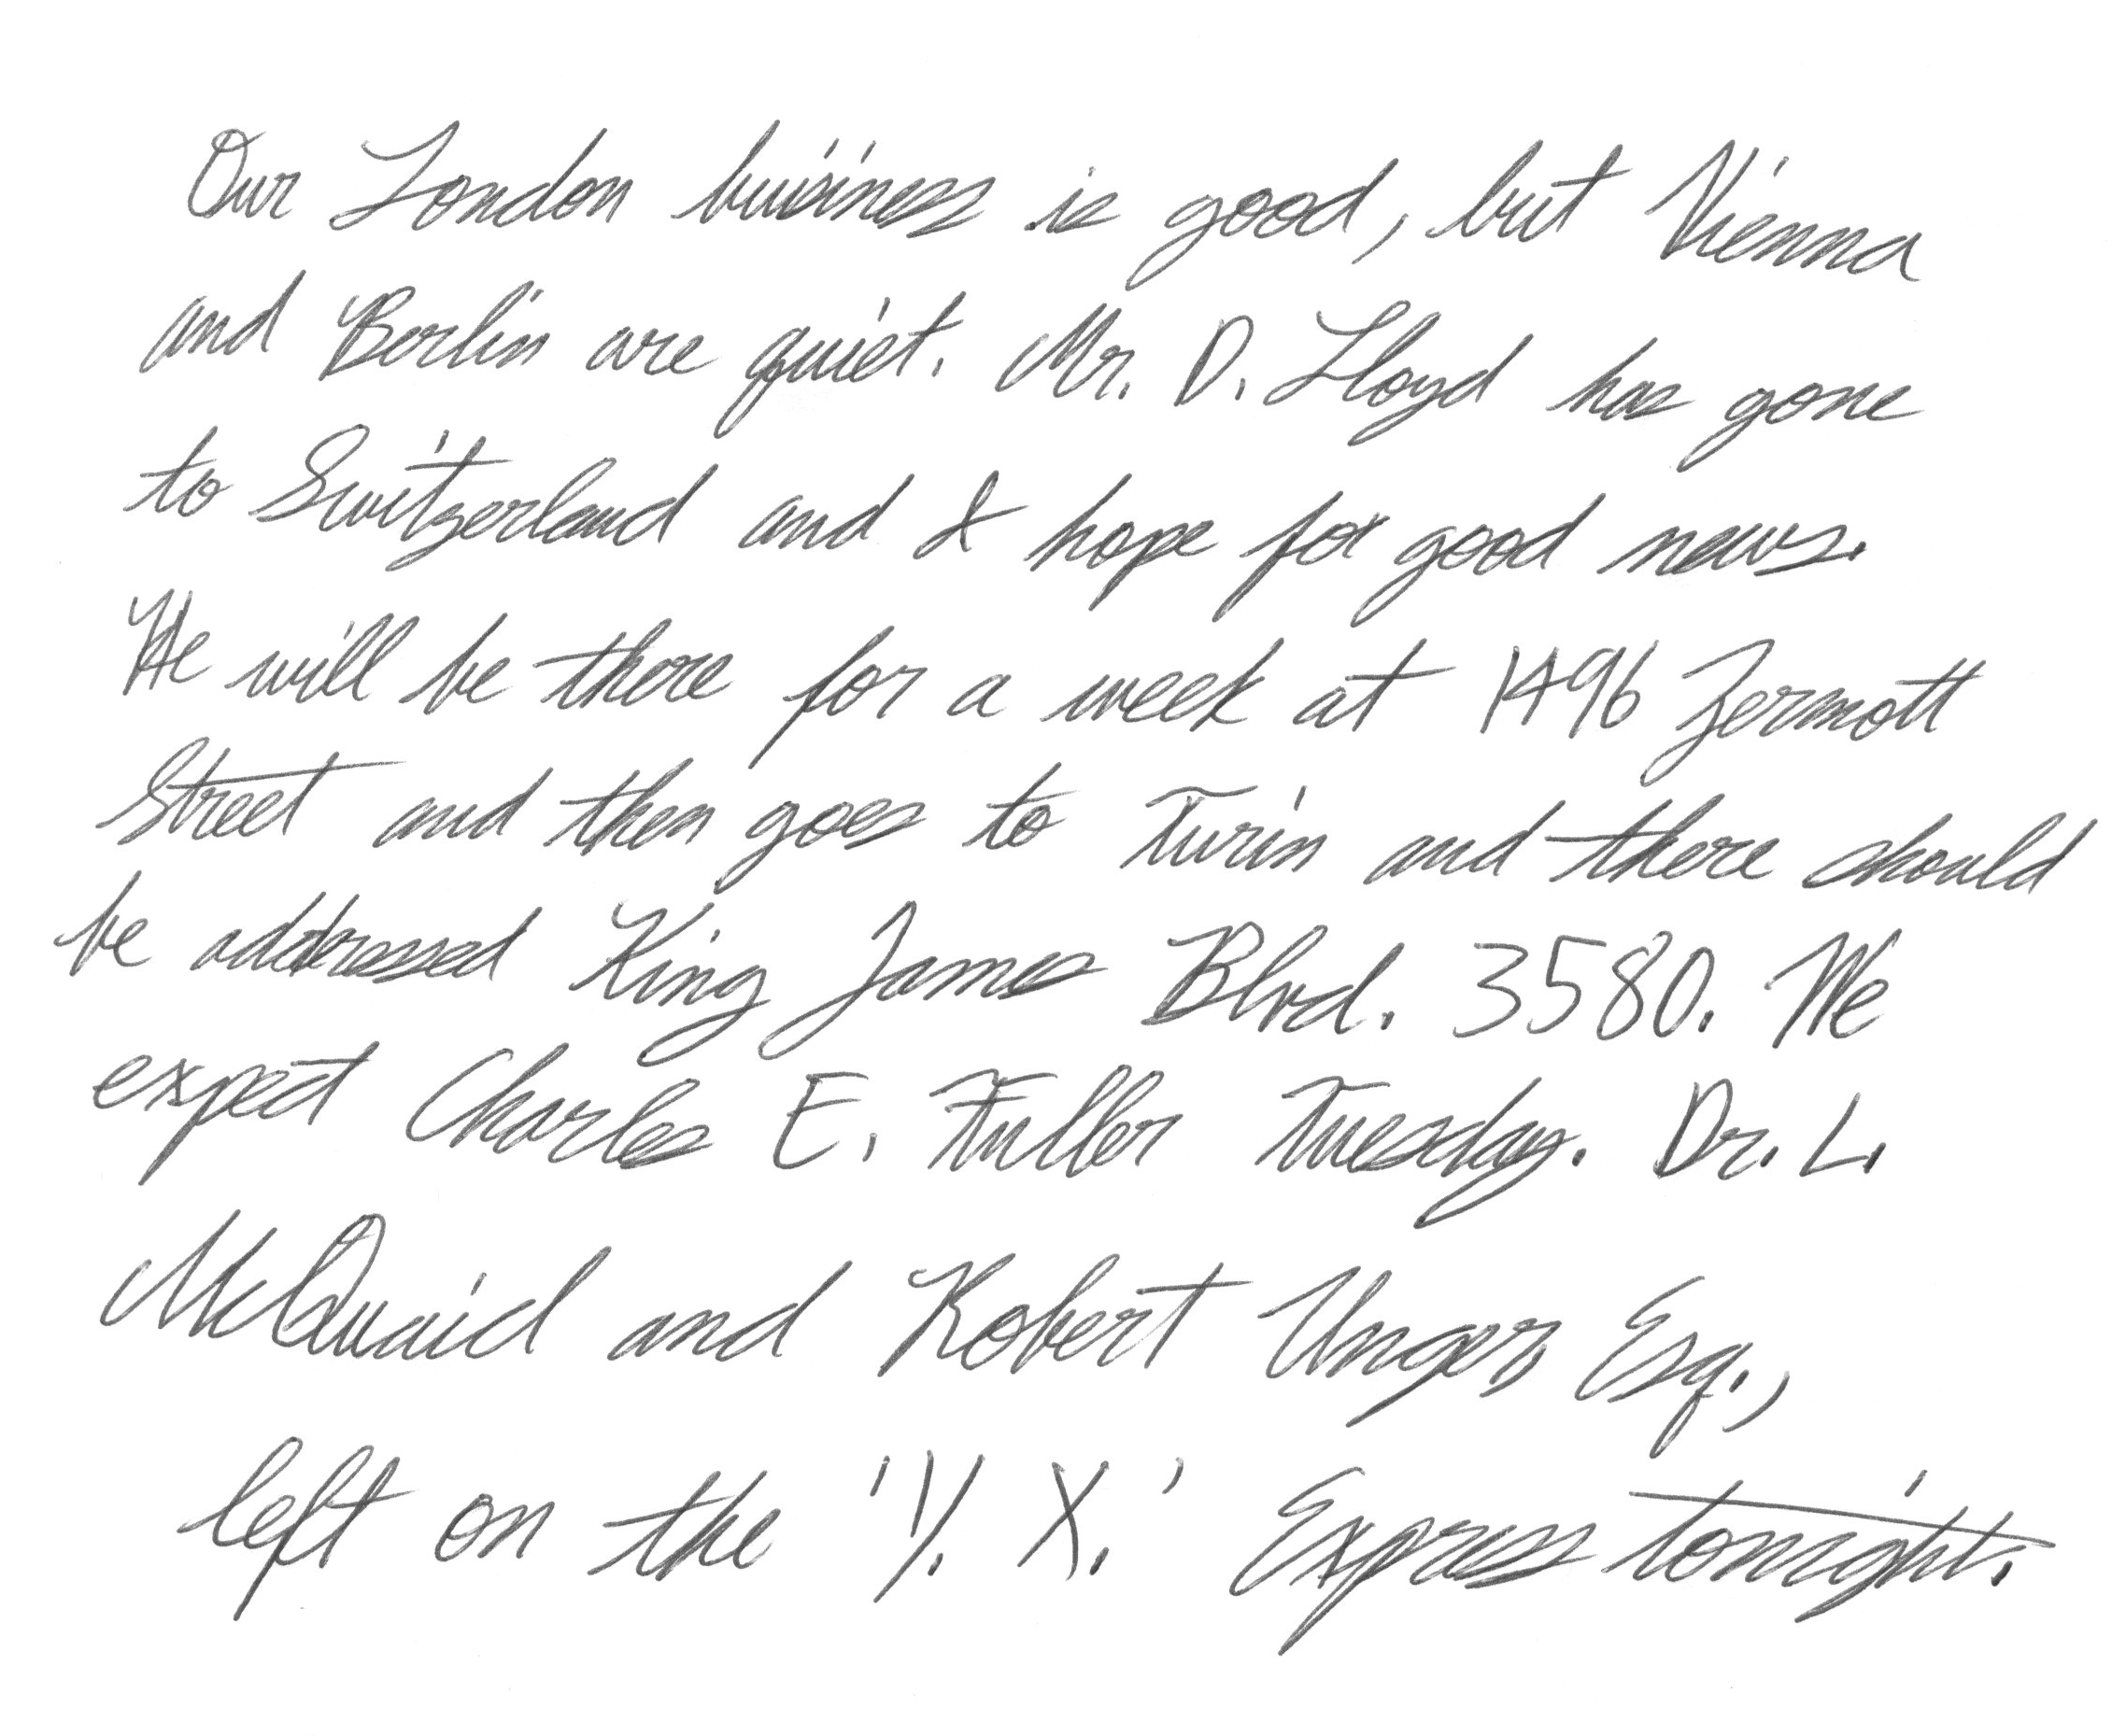 Our London business is good, but Vienna
and Berlin are quiet. Mr. D. Lloyd has gone
to Switzerland and I hope for good news.
He will be there for a week at 1496 Zermott
Street and then goes to Turin and there should
be addressed King James Blvd. 3580. We
expect Charles E. Fuller Tuesday. Dr. L.
McQuaid and Robert Unger, Esq.,
left on the 'Y. X.' Express tonight.